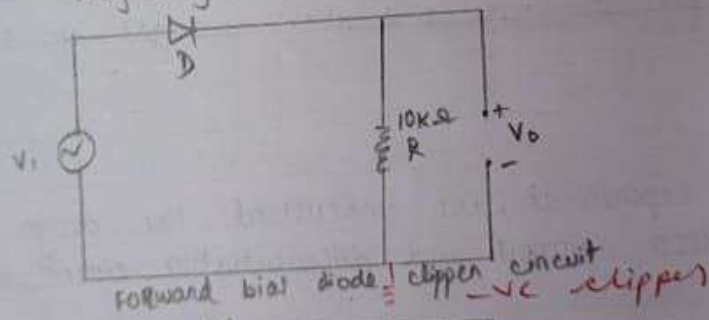 D
10KΩ
R
+
Vo
-
V1
Forward bias diode clipper circuit
-ve clipper